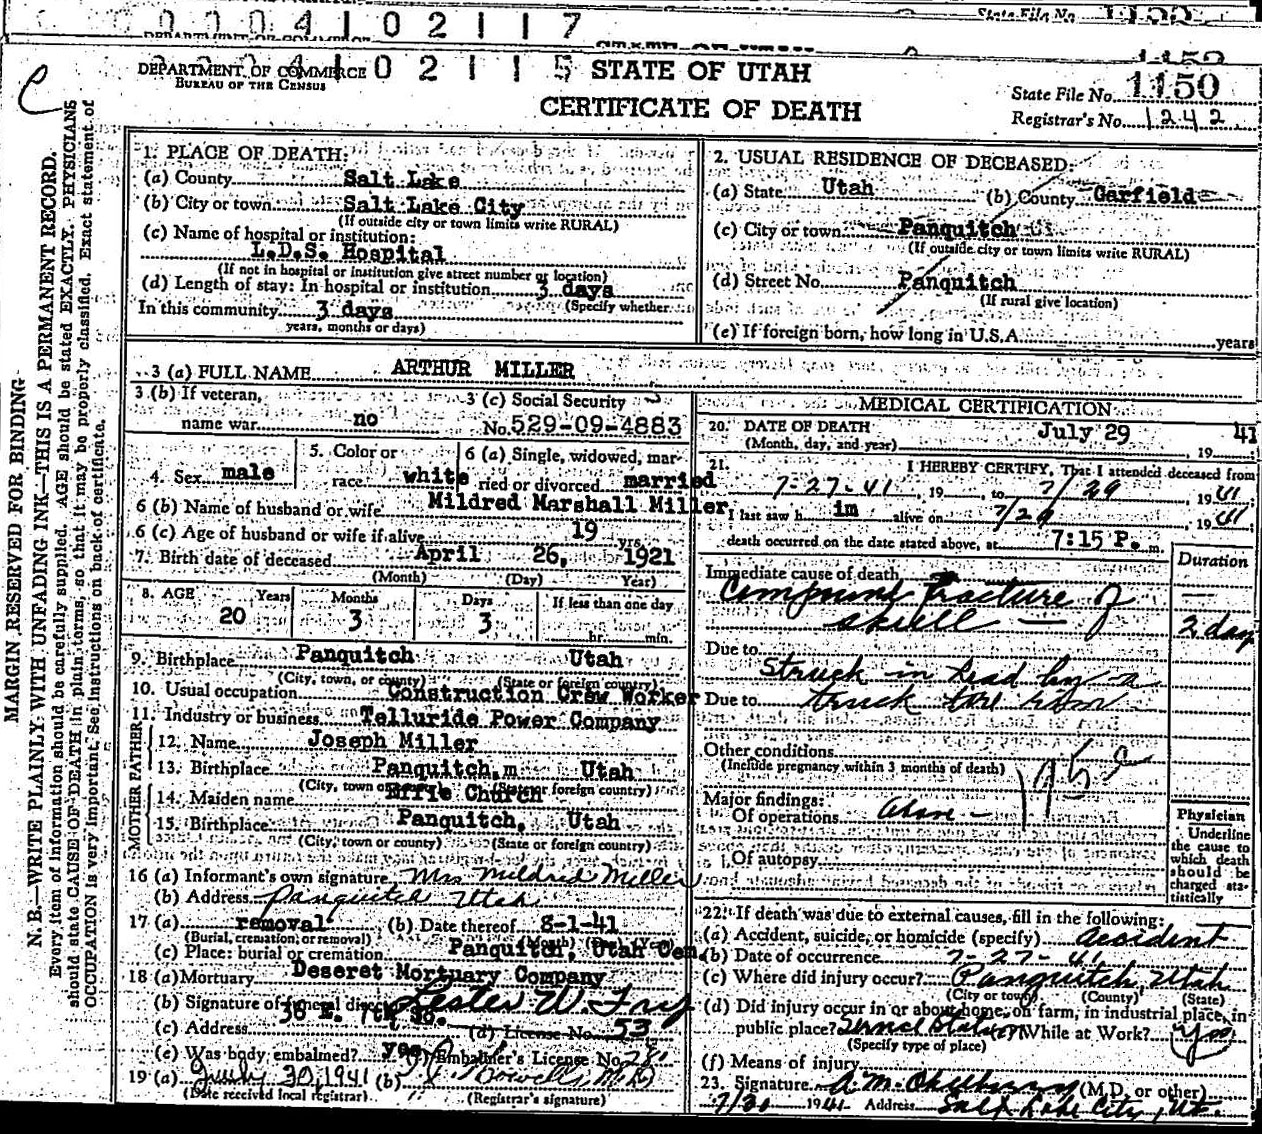 0004102117
State File No.
DEPARTMENT OF COMMERCE
0004102115
DEPARTMENT OF COMMERCE
BUREAU OF THE CENSUS
STATE OF UTAH
CERTIFICATE OF DEATH
State File No. 1150
Registrar's No. 1242
MARGIN RESERVED FOR BINDING
N. B.—WRITE PLAINLY WITH UNFADING INK—THIS IS A PERMANENT RECORD.
Every item of information should be carefully supplied. AGE should be stated EXACTLY. PHYSICIANS
should state CAUSE OF DEATH in plain terms, so that it may be properly classified. Exact statement of
OCCUPATION is very important. See instructions on back of certificate.
1. PLACE OF DEATH:
(a) County Salt Lake
(b) City or town Salt Lake City
(If outside city or town limits write RURAL)
(c) Name of hospital or institution:
L.D.S. Hospital
(If not in hospital or institution give street number or location)
(d) Length of stay: In hospital or institution 3 days
(Specify whether
In this community 3 days
years, months or days)
2. USUAL RESIDENCE OF DECEASED:
(a) State Utah (b) County Garfield
(c) City or town Panquitch
(If outside city or town limits write RURAL)
(d) Street No. Panquitch
(If rural give location)
(e) If foreign born, how long in U.S.A. years
3 (a) FULL NAME ARTHUR MILLER
3 (b) If veteran,
name war no
3 (c) Social Security
No. 529-09-4883
4. Sex male
5. Color or
race white
6 (a) Single, widowed, mar-
ried or divorced married
6 (b) Name of husband or wife Mildred Marshall Miller
6 (c) Age of husband or wife if alive 19 yrs.
7. Birth date of deceased April 26, 1921
(Month) (Day) Year)
8. AGE Years Months Days If less than one day
20 3 3 hr. min.
9. Birthplace Panquitch Utah
(City, town, or county) (State or foreign country)
10. Usual occupation Construction Crew Worker
11. Industry or business Telluride Power Company
FATHER
12. Name Joseph Miller
13. Birthplace Panquitch,m Utah
(City, town or county) (State or foreign country)
MOTHER
14. Maiden name Effie Church
15. Birthplace Panquitch, Utah
(City, town or county) (State or foreign country)
16 (a) Informant's own signature Mrs Mildred Miller
(b) Address Panquitch Utah
17 (a) removal (b) Date thereof 8-1-41
(Burial, cremation, or removal) (Month) (Day) (Year)
(c) Place: burial or cremation Panquitch, Utah Cem.
18 (a) Mortuary Deseret Mortuary Company
(b) Signature of funeral director Lester W. Fry
(c) Address 36 E. 7th So. (d) License No. 53
(e) Was body embalmed? yes (f) Embalmer's License No.
19 (a) July 30, 1941 (b)
(Date received local registrar) (Registrar's signature)
MEDICAL CERTIFICATION
20. DATE OF DEATH July 29 41
(Month, day, and year) , 19
21. I HEREBY CERTIFY, That I attended deceased from
7-27-41, 19 to 7/29, 1941
I last saw h im alive on 7/29, 1941
death occurred on the date stated above, at 7:15 P. m.
Duration
Immediate cause of death
Compound Fracture of
skull — 2 day
Due to
Struck in head by a
Due to truck tire rim
Other conditions
(Include pregnancy within 3 months of death)
Major findings:
Of operations above —
Of autopsy
Physician
Underline
the cause to
which death
should be
charged sta-
tistically
22. If death was due to external causes, fill in the following:
(a) Accident, suicide, or homicide (specify) accident
(b) Date of occurrence 7-27-41
(c) Where did injury occur? Panquitch, Utah
(City or town) (County) (State)
(d) Did injury occur in or about home, on farm, in industrial place, in
public place? While at Work? yes
(Specify type of place)
(f) Means of injury
23. Signature (M.D. or other)
7/30 1941 Address Salt Lake City, Ut.